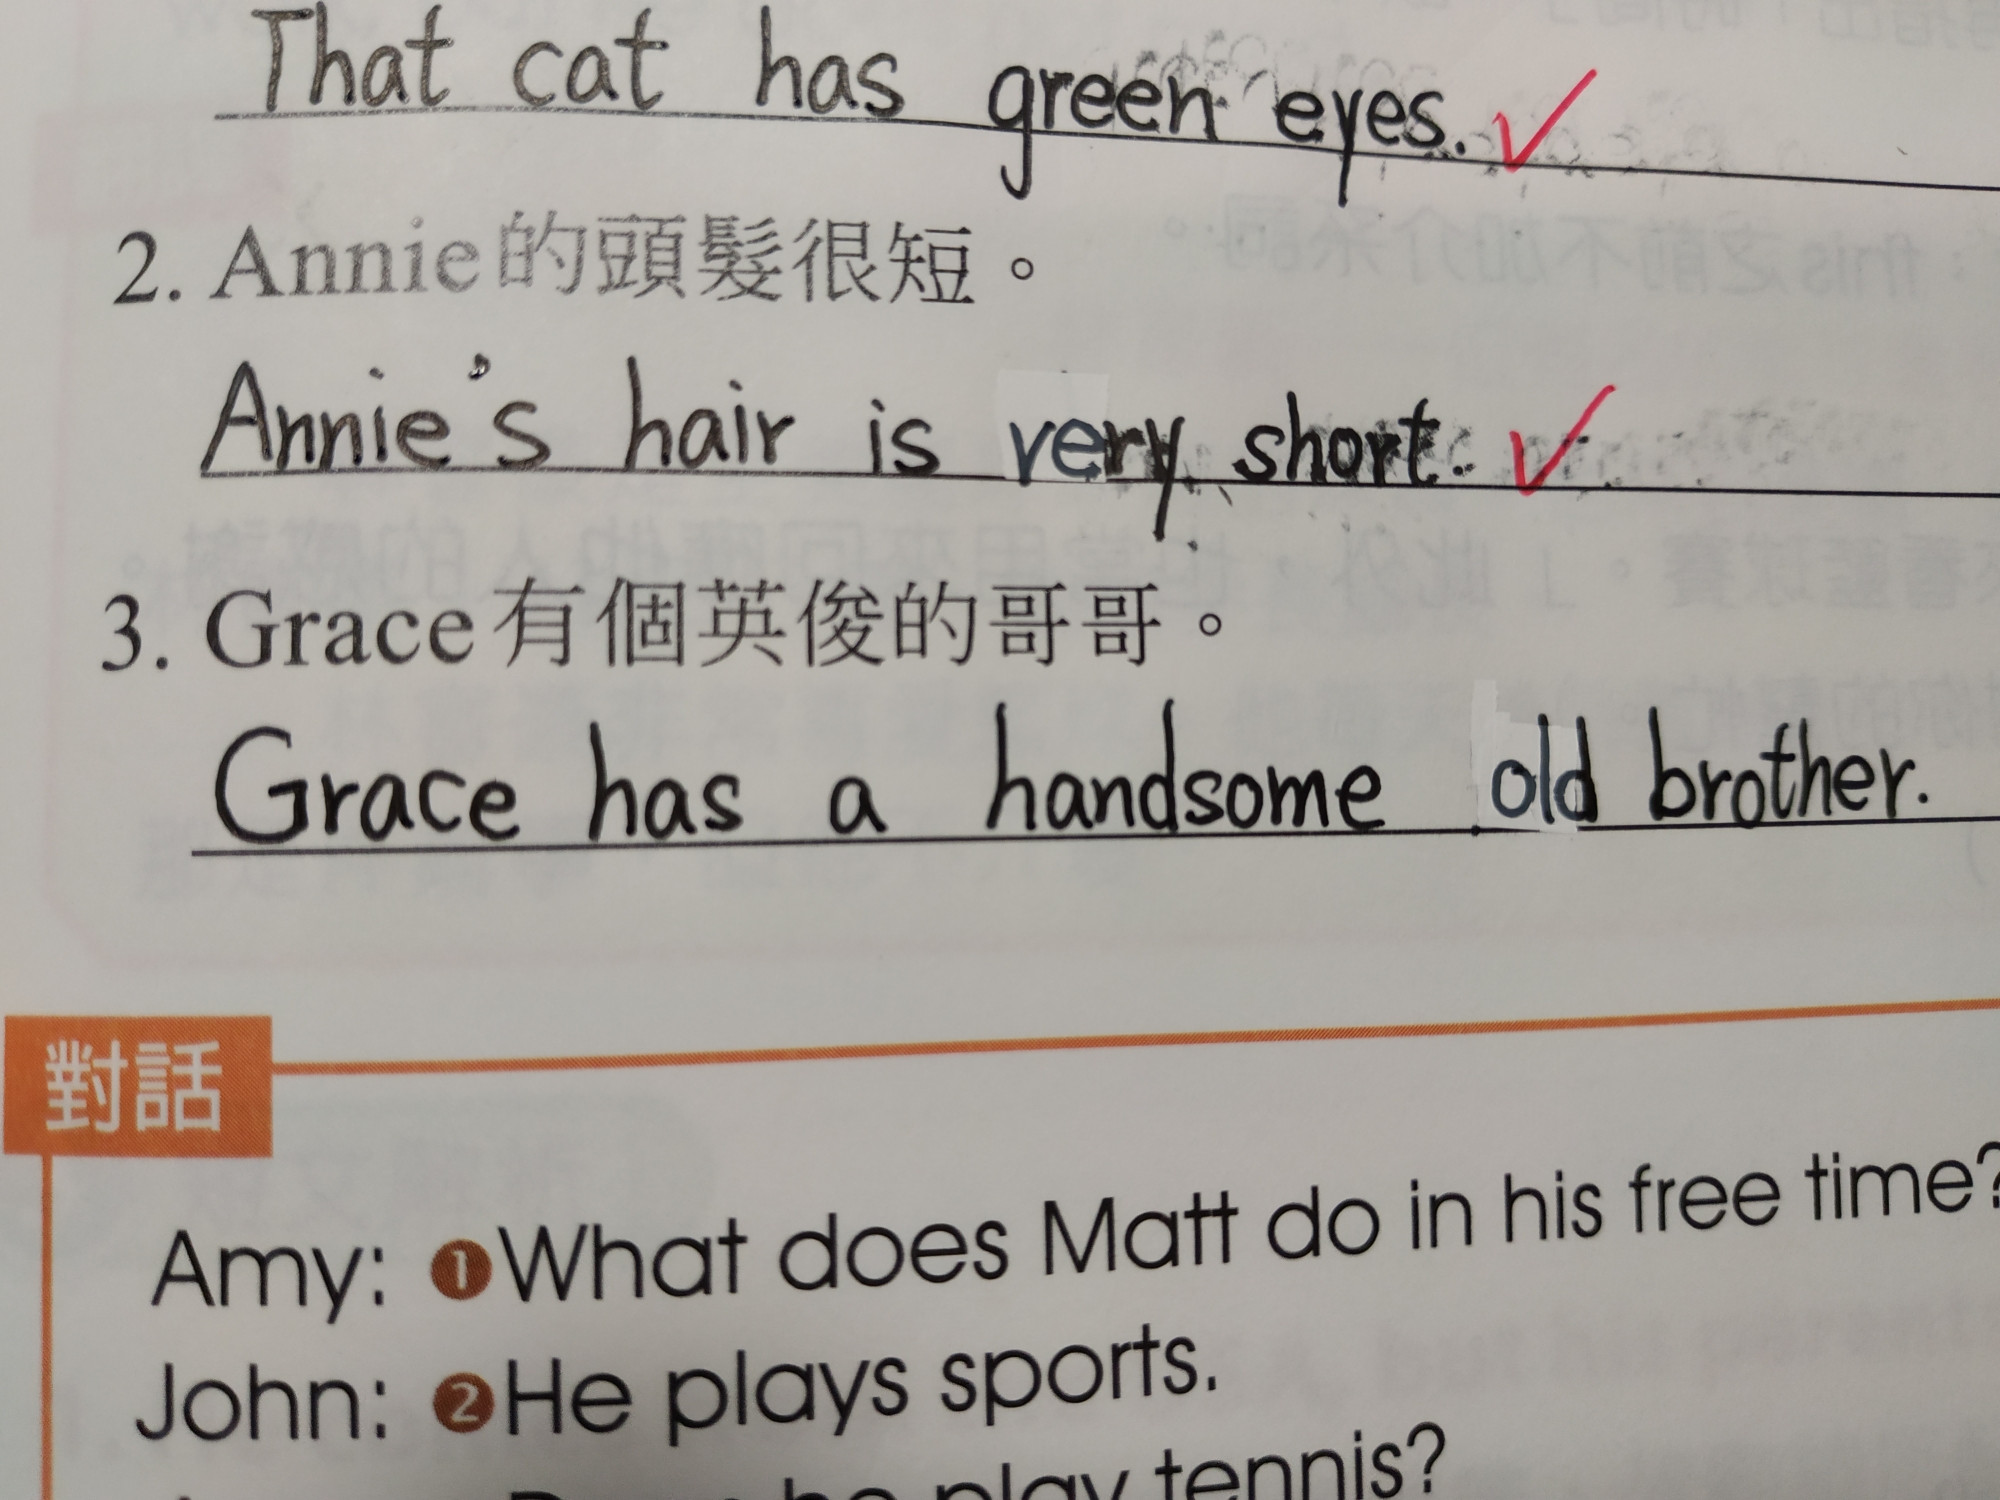 That cat has green eyes.
2. Annie的頭髮很短。
Annie's hair is very short.
3. Grace有個英俊的哥哥。
Grace has a handsome old brother.
對話
Amy: ❶What does Matt do in his free time?
John: ❷He plays sports.
he play tennis?